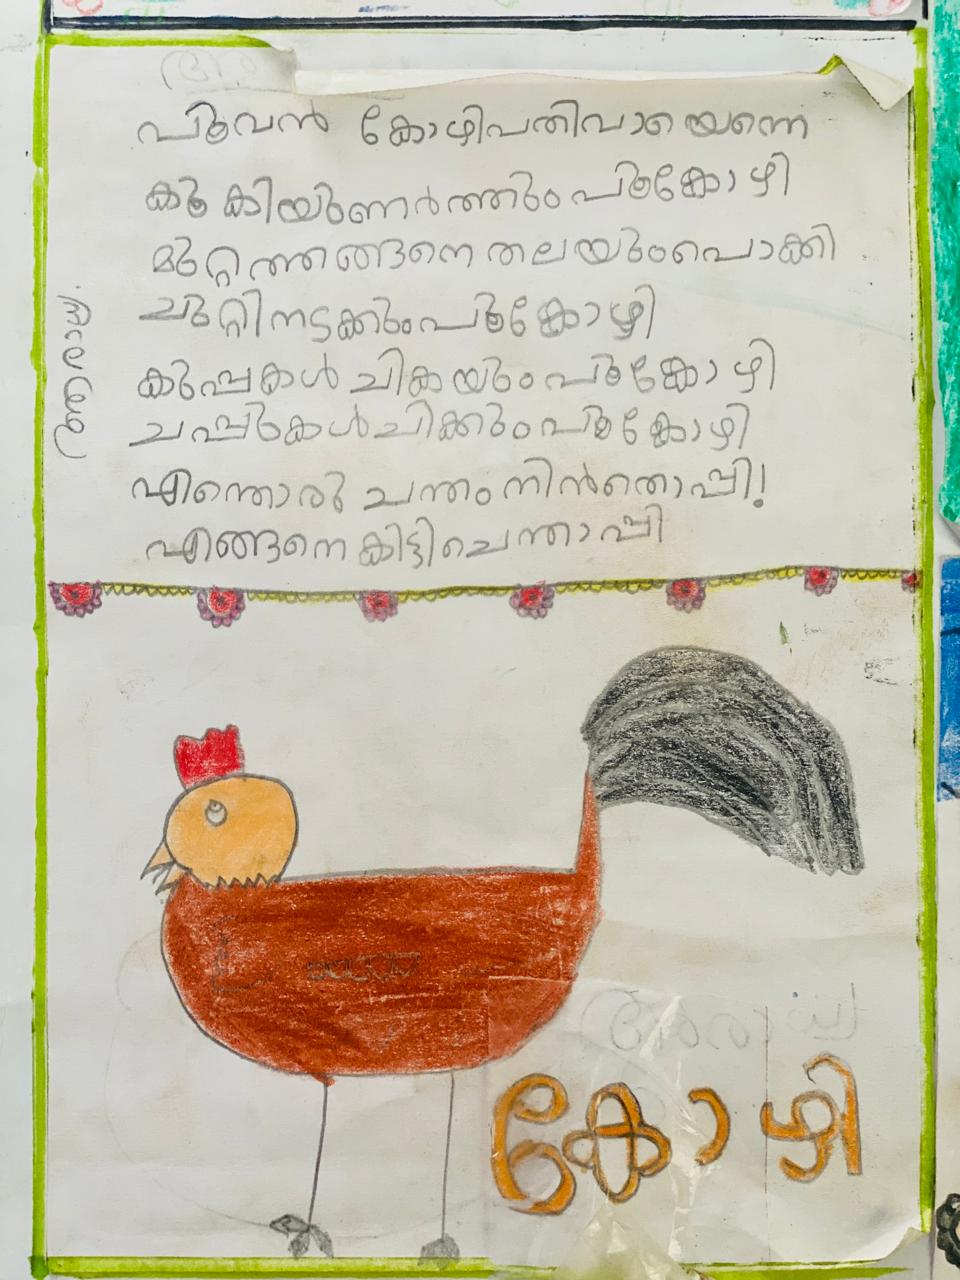 പൂവൻ കോഴിപതിവായെന്നെ
കൂ കിയുണർത്തും പൂക്കോഴി
മുറ്റത്തങ്ങനെ തലയുംപൊക്കി
ചുറ്റിനടക്കുംപൂക്കോഴി
കുപ്പകൾ ചികയും പൂക്കോഴി
ചപ്പുകൾചിക്കും പൂക്കോഴി
എന്തൊരു ചന്തം നിൻതൊപ്പി!
എങ്ങനെ കിട്ടി ചെന്താപ്പി
കോഴി